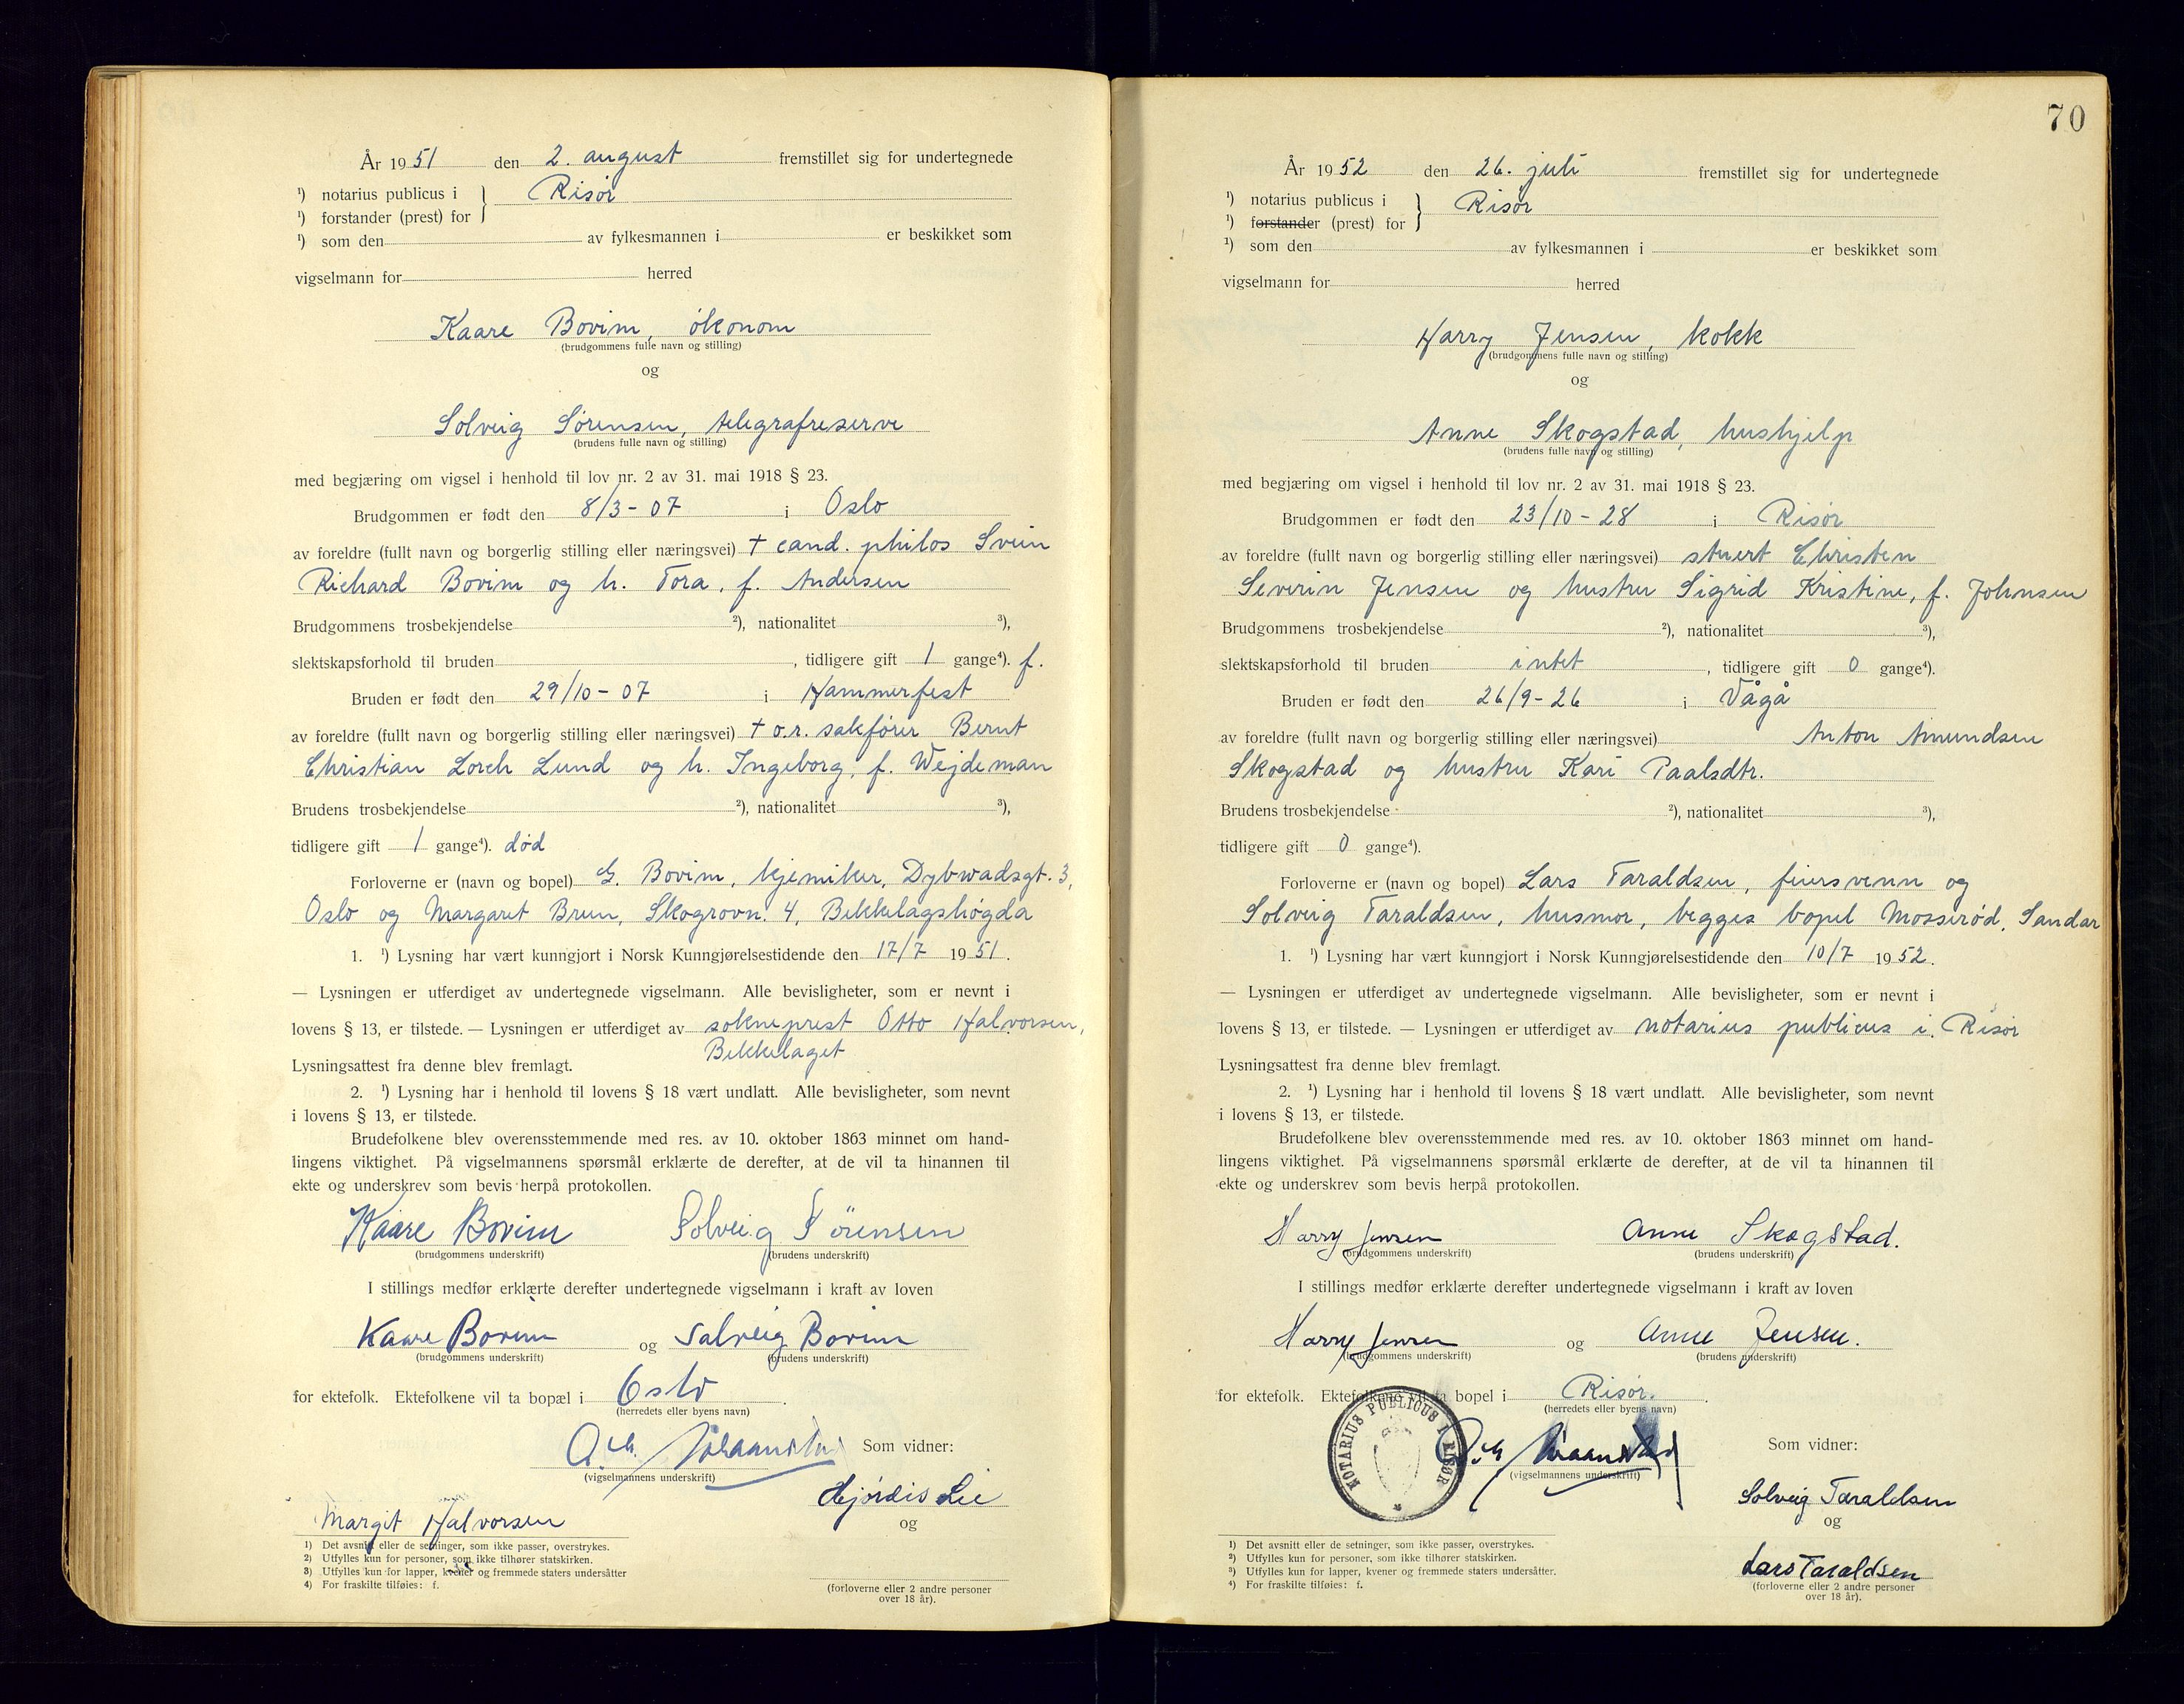 År 1951 den 2. august fremstillet sig for undertegnede
¹) notarius publicus i } Risør
¹) forstander (prest) for
¹) som den av fylkesmannen i er beskikket som
vigselmann for herred
Kaare Bovim, økonom
(brudgommens fulle navn og stilling)
og
Solveig Sørensen, telegrafreserve
(brudens fulle navn og stilling)
med begjæring om vigsel i henhold til lov nr. 2 av 31. mai 1918 § 23.
Brudgommen er født den 8/3 - 07 i Oslo
av foreldre (fullt navn og borgerlig stilling eller næringsvei) † cand. philos Svein
Richard Bovim og h. Tora, f. Andersen
Brudgommens trosbekjendelse ²), nationalitet ³),
slektskapsforhold til bruden , tidligere gift 1 gange⁴). f.
Bruden er født den 29/10 - 07 i Hammerfest
av foreldre (fullt navn og borgerlig stilling eller næringsvei) † o.r. sakfører Bernt
Christian Lorch Lund og h. Ingeborg, f. Wejdeman
Brudens trosbekjendelse ²), nationalitet ³),
tidligere gift 1 gange⁴). død
Forloverne er (navn og bopel) G. Bovim, kjemiker, Dybwadsgt. 3,
Oslo og Margaret Brun, Skogrovn. 4, Bekkelagshøgda
1. ¹) Lysning har vært kunngjort i Norsk Kunngjørelsestidende den 17/7 1951.
— Lysningen er utferdiget av undertegnede vigselmann. Alle bevisligheter, som er nevnt i
lovens § 13, er tilstede. — Lysningen er utferdiget av sokneprest Otto Halvorsen,
Bekkelaget
Lysningsattest fra denne blev fremlagt.
2. ¹) Lysning har i henhold til lovens § 18 vært undlatt. Alle bevisligheter, som nevnt
i lovens § 13, er tilstede.
Brudefolkene blev overensstemmende med res. av 10. oktober 1863 minnet om hand-
lingens viktighet. På vigselmannens spørsmål erklærte de derefter, at de vil ta hinannen til
ekte og underskrev som bevis herpå protokollen.
Kaare Bovim Solveig Sørensen
(brudgommens underskrift) (brudens underskrift)
I stillings medfør erklærte derefter undertegnede vigselmann i kraft av loven
Kaare Bovim og Solveig Bovim
(brudgommens underskrift) (brudens underskrift)
for ektefolk. Ektefolkene vil ta bopæl i Oslo.
(herredets eller byens navn)
Som vidner:
(vigselmannens underskrift)
Hjørdis Lie
Margit Halvorsen og
1) Det avsnitt eller de setninger, som ikke passer, overstrykes.
2) Utfylles kun for personer, som ikke tilhører statskirken.
3) Utfylles kun for lapper, kvener og fremmede staters undersåtter
4) For fraskilte tilføies: f.
(forloverne eller 2 andre personer
over 18 år).
70
År 1952 den 26. juli fremstillet sig for undertegnede
¹) notarius publicus i } Risør
¹) forstander (prest) for
¹) som den av fylkesmannen i er beskikket som
vigselmann for herred
Harry Jensen, kokk
(brudgommens fulle navn og stilling)
og
Anne Skogstad, hushjelp
(brudens fulle navn og stilling)
med begjæring om vigsel i henhold til lov nr. 2 av 31. mai 1918 § 23.
Brudgommen er født den 23/10 - 28 i Risør
av foreldre (fullt navn og borgerlig stilling eller næringsvei) stuert Christen
Severin Jensen og hustru Sigrid Kristine, f. Johnsen
Brudgommens trosbekjendelse ²), nationalitet ³),
slektskapsforhold til bruden intet , tidligere gift 0 gange⁴).
Bruden er født den 26/9 - 26 i Vågå
av foreldre (fullt navn og borgerlig stilling eller næringsvei) Anton Amundsen
Skogstad og hustru Kari Paalsdtr.
Brudens trosbekjendelse ²), nationalitet ³),
tidligere gift 0 gange⁴).
Forloverne er (navn og bopel) Lars Taraldsen, feiersvenn og
Solveig Taraldsen, husmor, begges bopel Mosserød, Sandar
1. ¹) Lysning har vært kunngjort i Norsk Kunngjørelsestidende den 10/7 1952.
— Lysningen er utferdiget av undertegnede vigselmann. Alle bevisligheter, som er nevnt i
lovens § 13, er tilstede. — Lysningen er utferdiget av notarius publicus i Risør
Lysningsattest fra denne blev fremlagt.
2. ¹) Lysning har i henhold til lovens § 18 vært undlatt. Alle bevisligheter, som nevnt
i lovens § 13, er tilstede.
Brudefolkene blev overensstemmende med res. av 10. oktober 1863 minnet om hand-
lingens viktighet. På vigselmannens spørsmål erklærte de derefter, at de vil ta hinannen til
ekte og underskrev som bevis herpå protokollen.
Harry Jensen Anne Skogstad.
(brudgommens underskrift) (brudens underskrift)
I stillings medfør erklærte derefter undertegnede vigselmann i kraft av loven
Harry Jensen og Anne Jensen.
(brudgommens underskrift) (brudens underskrift)
for ektefolk. Ektefolkene vil ta bopel i Risør.
(herredets eller byens navn)
NOTARIUS PUBLICUS I RISØR
Som vidner:
(vigselmannens underskrift)
Solveig Taraldsen
og
Lars Taraldsen
(forloverne eller 2 andre personer
over 18 år).
1) Det avsnitt eller de setninger, som ikke passer, overstrykes.
2) Utfylles kun for personer, som ikke tilhører statskirken.
3) Utfylles kun for lapper, kvener og fremmede staters undersåtter.
4) For fraskilte tilføies: f.